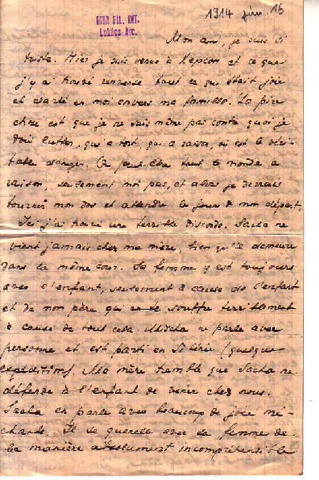 1914 juin. 16
MTA FIL. INT.
Lukács Arc.
Mon ami, je suis si
triste. Hier je suis venue à Kherson et ce que
j'y a trouvé renverse tout ce qui était joie
et clarté en moi envers ma famille. La pire
chose est que je ne sais même pas contre quoi je
dois lutter, qui a tort, qui a raison, où est le véri-
table danger. Ou peut-être tout le monde a
raison, seulement moi pas, et alors je devrais
tourner mon dos et attendre le jour de mon départ.
Ici j'ai trouvé une terrible discorde. Sacha ne
vient jamais chez ma mère, bien qu'il demeure
dans la même cour. Sa femme y est toujours
avec l'enfant, seulement à cause de l'enfant
et de mon père qui souffre terriblement
à cause de tout cela. Mischa ne parle avec
personne et est parti en Sibérie (quelque
expédition). Ma mère tremble que Sacha ne
défende à l'enfant de venir chez nous.
Sacha en parle avec beaucoup de joie mé-
chante. Il se querelle avec sa femme de
la manière absolument incompréhensible